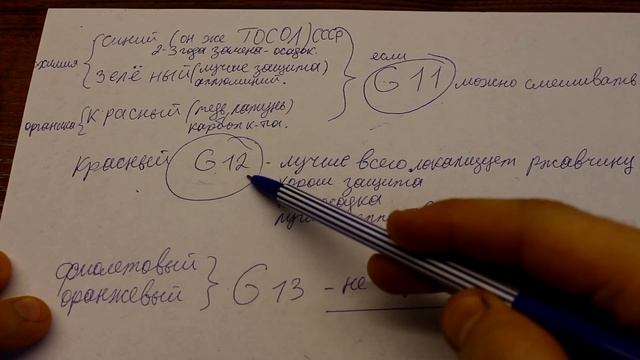 синий (он же ТОСОЛ) СССР
2-3 года замена-осадок.
химия
Зелёный (лучше защита)
аллюминий.
если
G 11 можно смешивать
органика
красный (медь, латунь)
карбон к-та.
красный G 12 - лучше всего локализует ржавчину
хорош защита
осадка
фиолетовый
оранжевый
G 13 - не